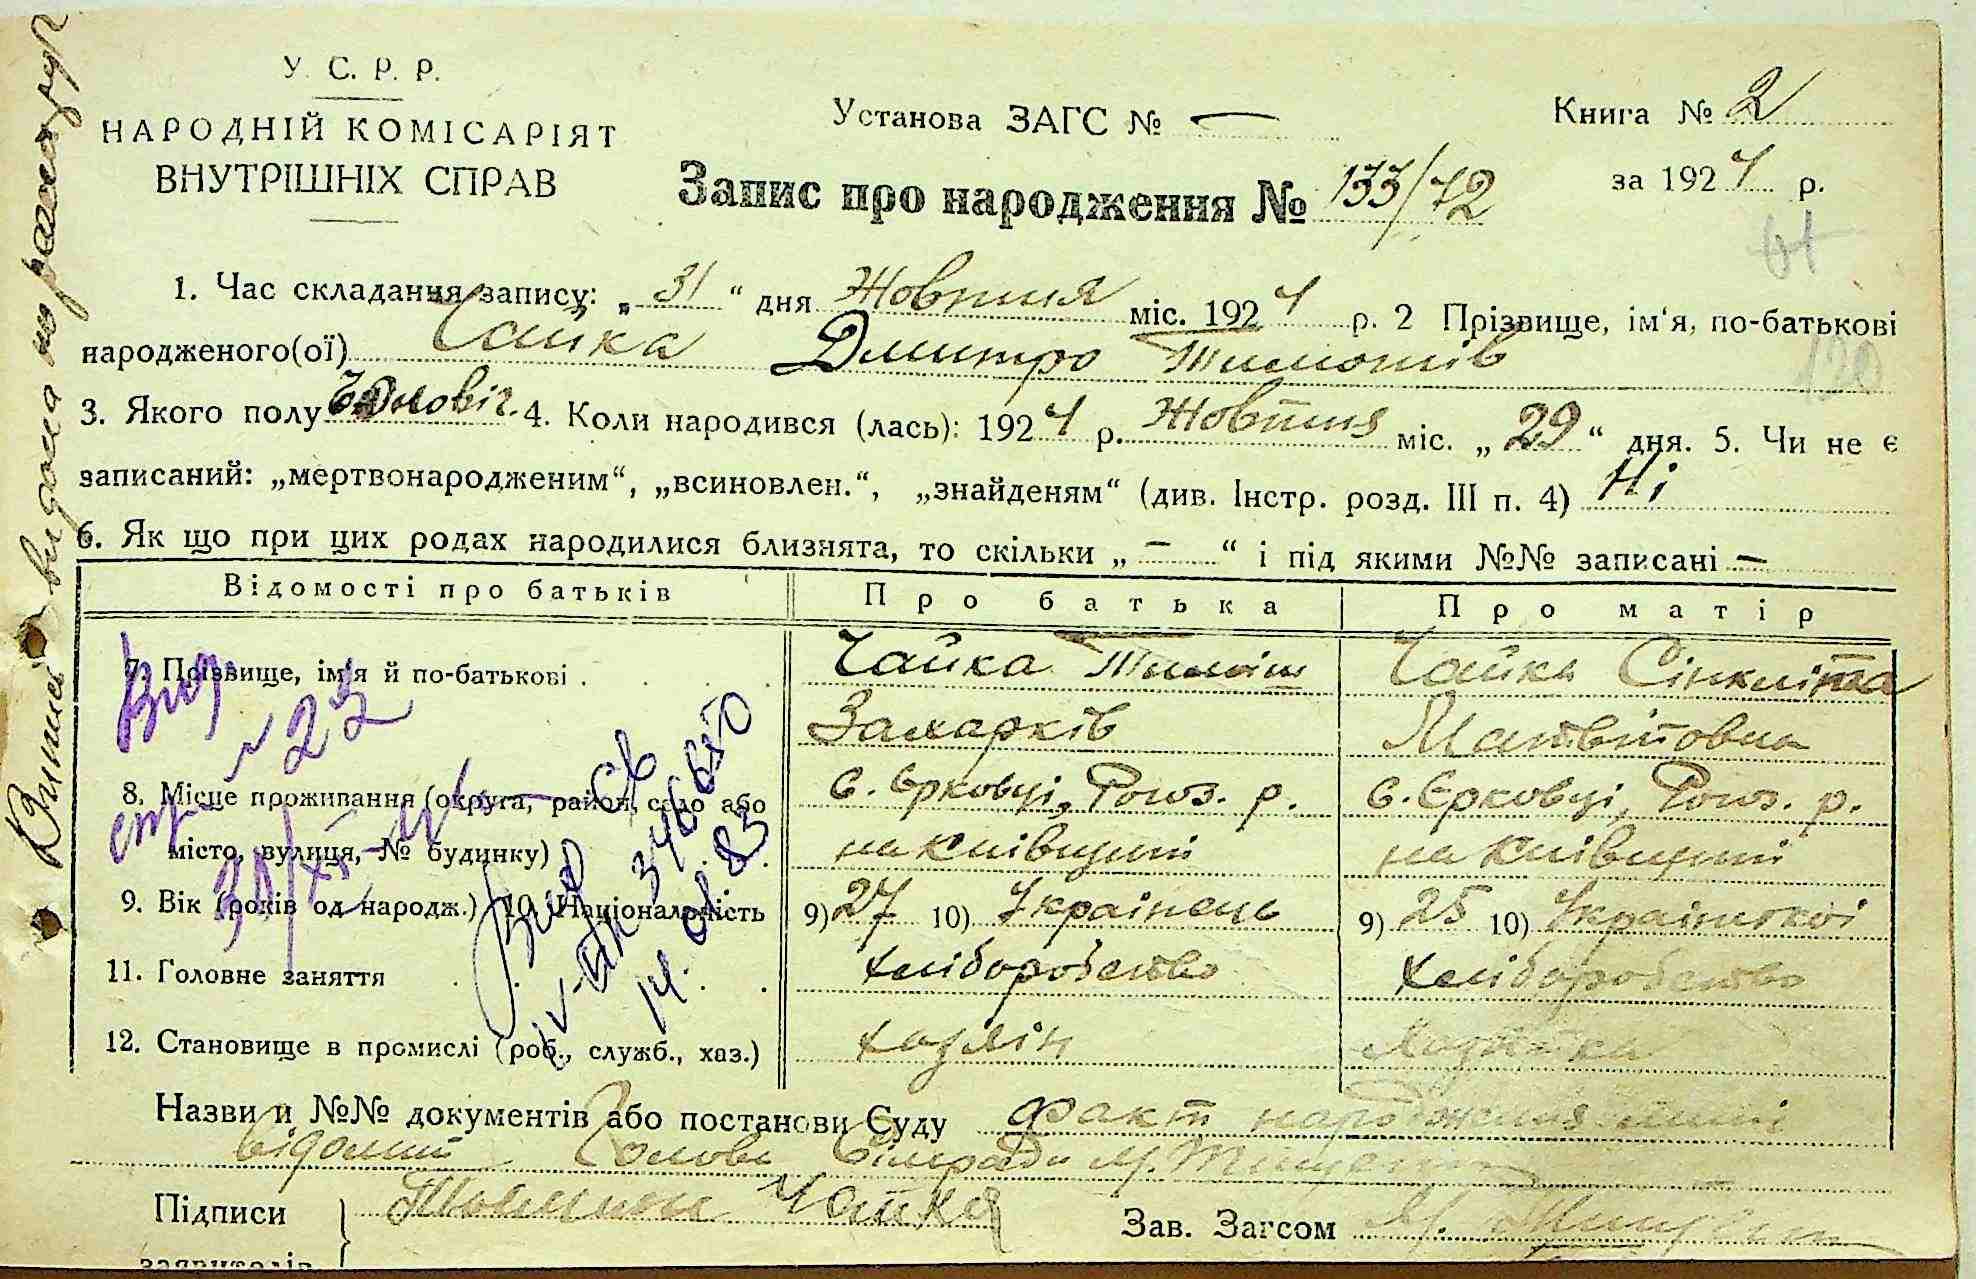 У. С. Р. Р.
НАРОДНІЙ КОМІСАРІЯТ
ВНУТРІШНІХ СПРАВ
Установа ЗАГС № —
Книга № 2
за 1924 р.
Запис про народження № 133/72
1. Час складання запису: „ 31 “ дня Жовтня міс. 1924 р. 2 Прізвище, ім‘я, по-батькові
народженого(ої) Чайка Дмитро Тимошів
3. Якого полу Чоловіч. 4. Коли народився (лась): 1924 р. Жовтня міс. „ 29 “ дня. 5. Чи не є
записаний: „мертвонародженим“, „всиновлен.“, „знайденям“ (див. Інстр. розд. III п. 4) Ні
6. Як що при цих родах народилися близнята, то скільки „ — “ і під якими №№ записані —
Відомості про батьків
Про батька
Про матір
7. Прізвище, ім‘я й по-батькові
Чайка Тиміш
Захарків
Чайка Сінкліта
Матвіївна
8. Місце проживання (округа, район, село або
місто, вулиця, № будинку)
с. Єрковці, Рогоз. р.
на Київщині
с. Єрковці, Рогоз. р.
на Київщині
9. Вік (років од народж.) 10. Національність
9) 27 10) Українець
9) 25 10)
11. Головне заняття
хліборобство
хліборобство
12. Становище в промислі (роб., служб., хаз.)
хазяін
Хазяйка
Назви й №№ документів або постанови Суду Факт народження мині
відомий Голова Сільради М. Тищенко
Підписи
заявителів
Чайка
Зав. Загсом М. Тищенко
Вид
№ 23
IV-БК 346650
14. 01 83
видана на руки